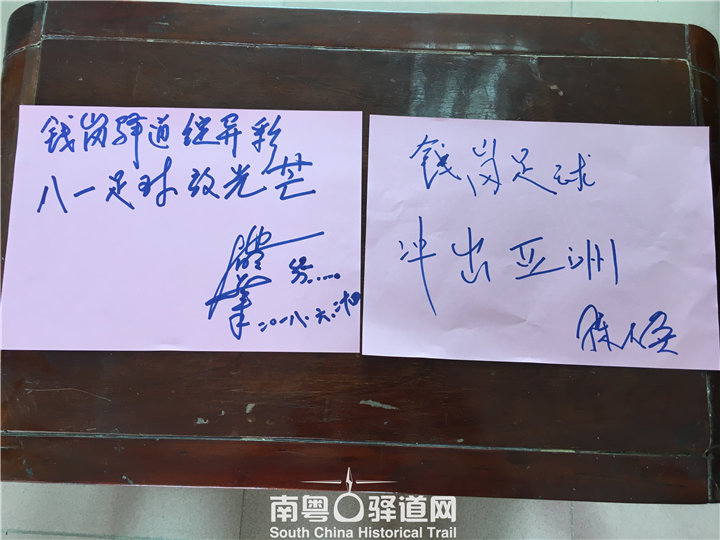 钱岗驿道绽异彩
八一足球放光芒
二〇一八.六.廿四
钱岗足球
冲出亚洲
南粤古驿道网
South China Historical Trail